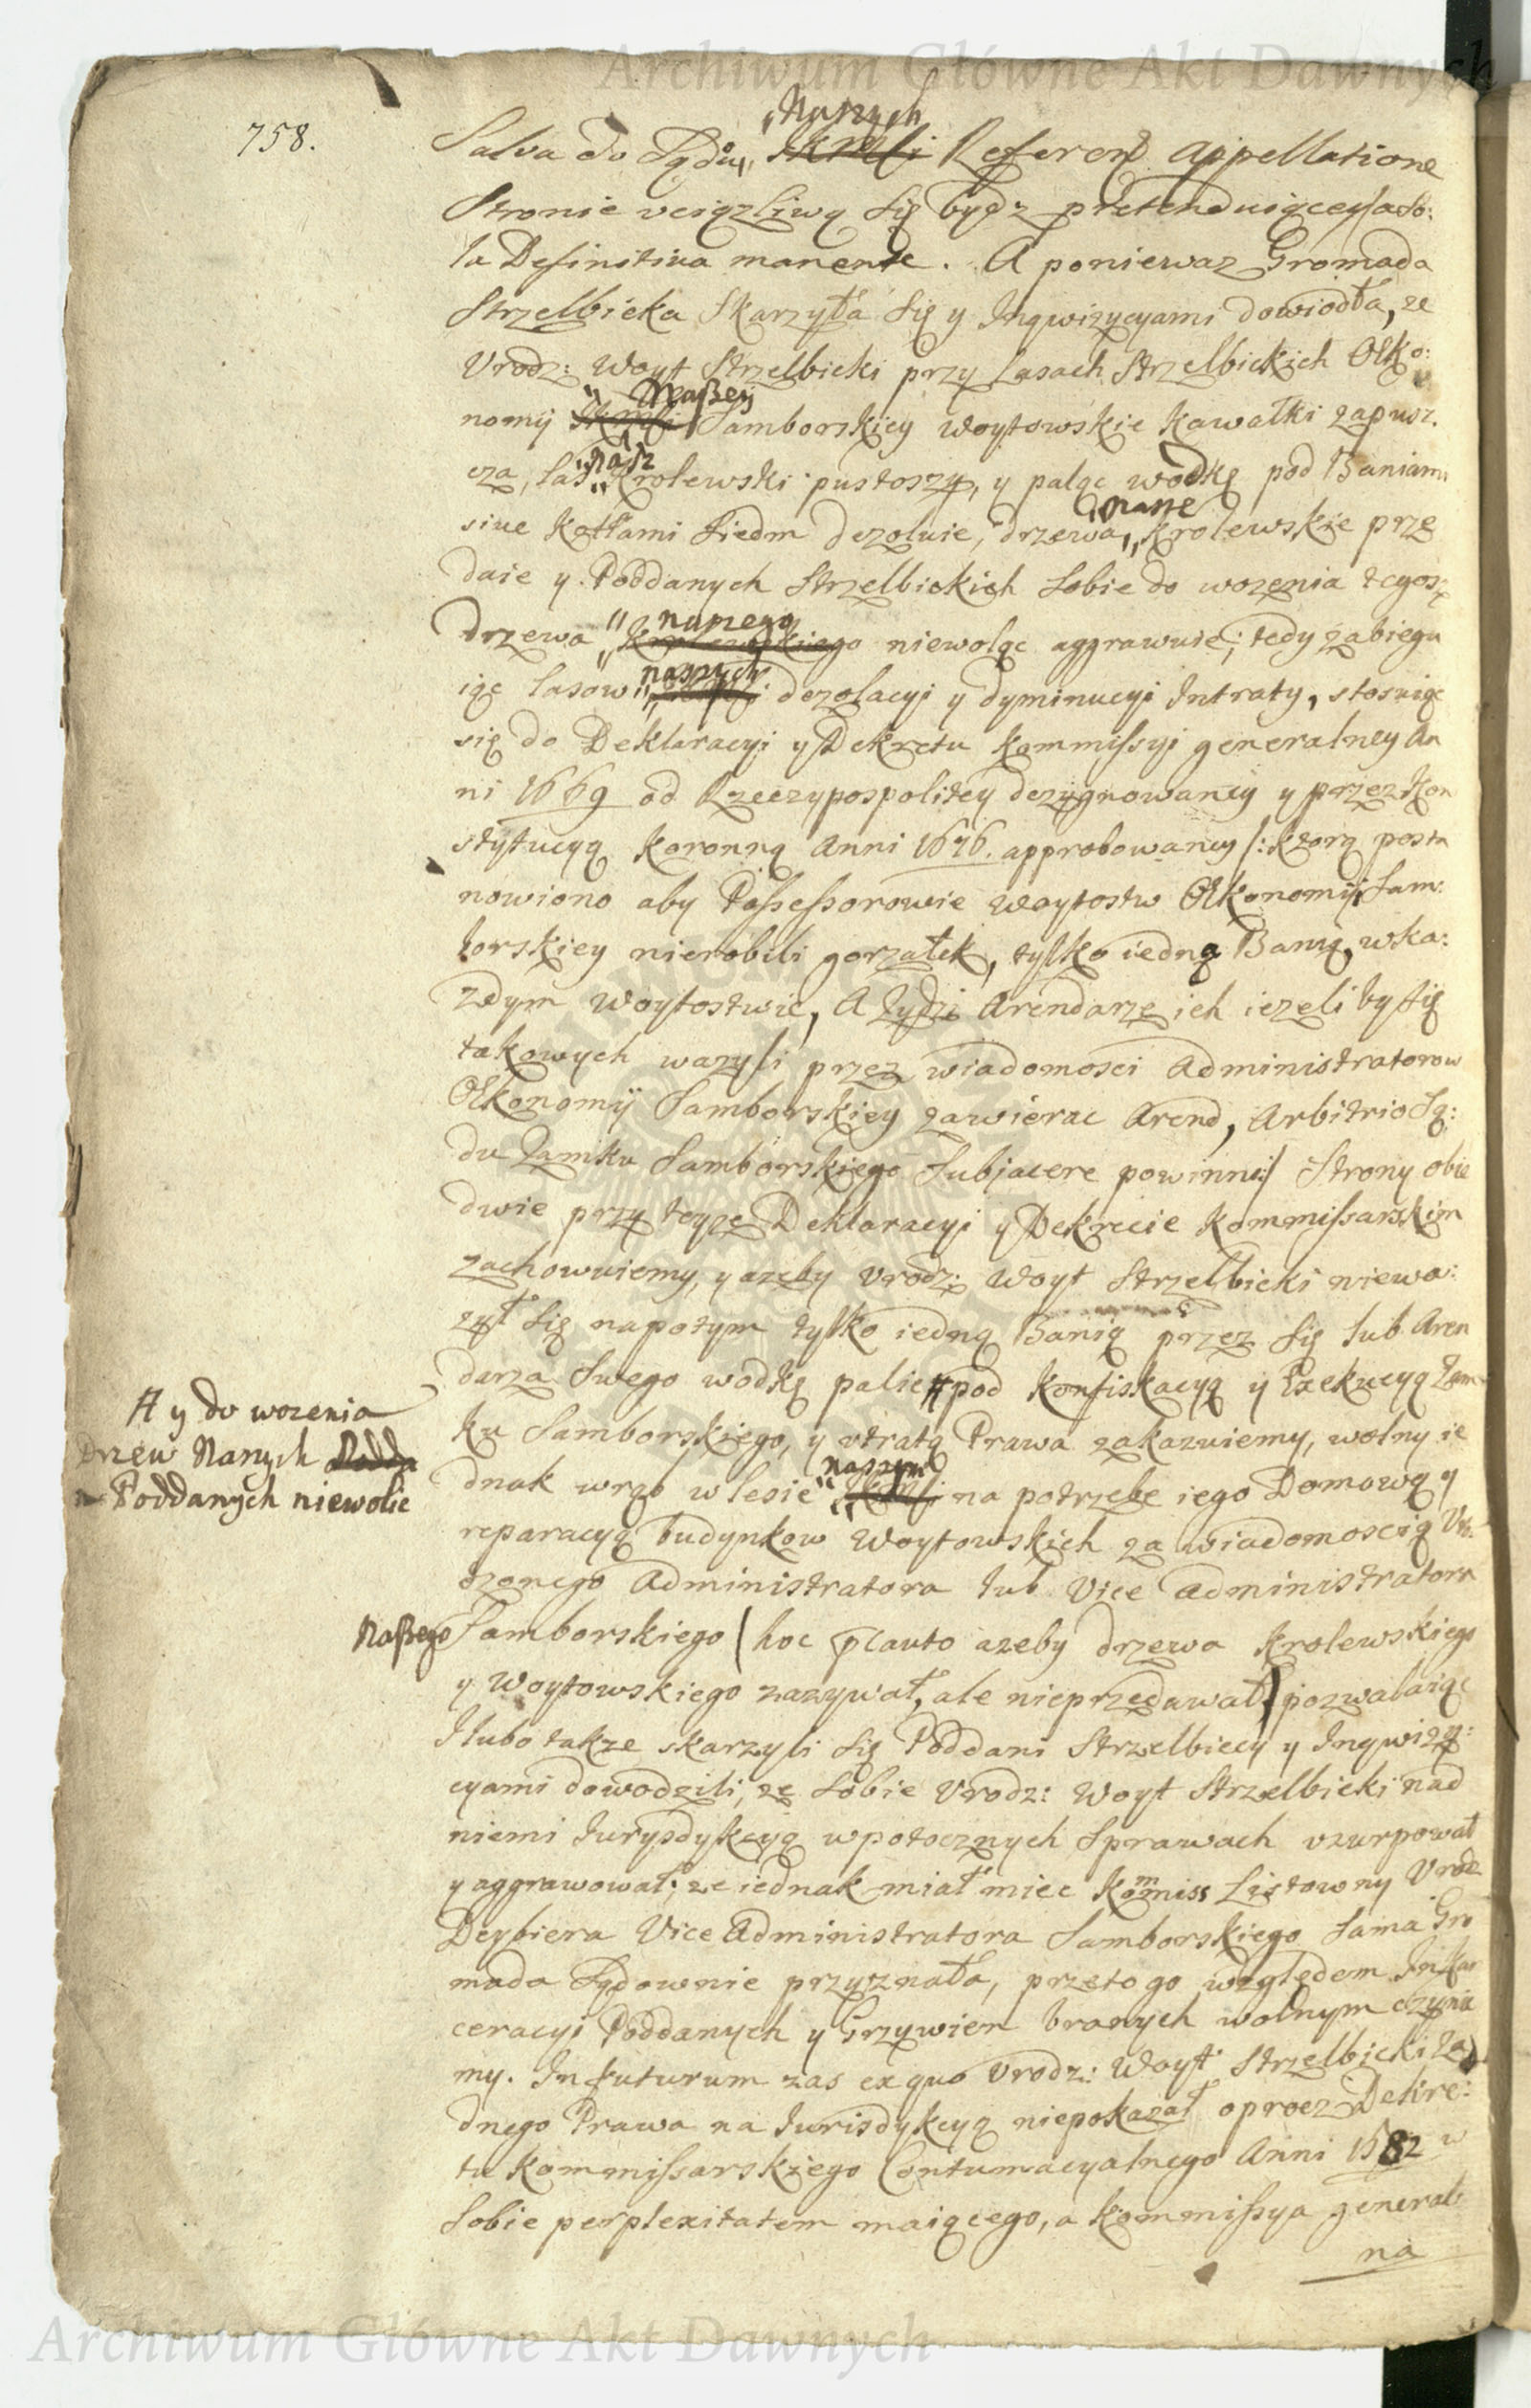 Archiwum Główne Akt Dawnych
758.
Naszych
Salva do Sądu JKMści Referen. appellatione
Stronie uciązliwą się bydz pretenduiącey salo:
la Definitiva manente. A poniewaz Gromada
Strzelbicka skarzyła się y Inqwizycyami dowiodła, ze
Urodz: Woyt Strzelbicki przy Lasach Strzelbickich Œko:
Naszey
nomij JKMści Samborskiey Woytowskie kawałki zapusz.
nasz
cza, las Krolewski pustoszy, y paląc wodkę pod Baniami
nasze
sive kotłami siedm dezoluie, drzewa Krolewskie prze
daie y Poddanych Strzelbickich sobie do wozenia tegosz
naszego
drzewa Krolewskiego niewoląc aggrawuie; tedy zabiega
naszych
iąc lasow dezolacyi y dyminucyi Intraty, stosuiąc
się do Deklaracyi y Dekretu Kommissyi generalney An
ni 1669 od Rzeczypospolitey dezygnowaney y przez Kon
stytucyą koronną Anni 1676. approbowaney /: ktorą posta
nowiono aby Possessorowie Woytostw Œkonomij Sam:
borskiey nierobili gorzałek, tylko iedną Banią, wka:
zdym Woytostwie, A Zydzi Arendarze ich iezeli by się
takowych wazyli przez wiadomosci Administratorow
Œkonomij Samborskiey zawierac Arend, Arbitrio Są:
du Zamku Samborskiego Subjacere powinni:/ Strony obie
dwie przy teyze Deklaracyi y Dekrecie Kommissarskim
zachowuiemy, y azeby Urodz: Woyt Strzelbicki niewa:
zył się napotym tylko iedną Banią przez się lub Aren
darza swego wodkę palic # pod konfiskacyą y Exekucyą Zam
# y do wozenia
Drzew Naszych Podda
Poddanych niewolic
ku Samborskiego, y utratą Prawa zakazuiemy, wolny ie
naszym
dnak wrąb w lesie JKMści na potrzebe iego Domową y
reparacyą budynkow Woytowskich za wiadomoscią Uro:
dzonego Administratora lub Vice Administratora
Naszego Samborskiego / hoc cauto azeby drzewa Krolewskiego
y Woytowskiego zazywał, ale nieprzedawał / pozwalaiąc
I lubo takze skarzyli się Poddani Strzelbiccy y Inqwizy:
cyami dowodzili, ze sobie Urodz: Woyt Strzelbicki nad
niemi Jurysdykcyą wpotocznych Sprawach uzurpował
y aggrawował; ze iednak miał miec Kommiss Listowny Urodz
Deybiera Vice Administratora Samborskiego sama Gro
mada Sądownie przyznała, przeto go względem Inkar
ceracyi Poddanych y Grzywien branych wolnym czynie
my. In futurum zas ex quo Urodz: Woyt Strzelbicki Za
dnego Prawa na Jurisdykcyą niepokazał oprocz Dekre:
tu Kommissarskiego Contumacyalnego Anni 1582 w
sobie perplexitatem maiącego, a Kommissya general
na
Archiwum Główne Akt Dawnych